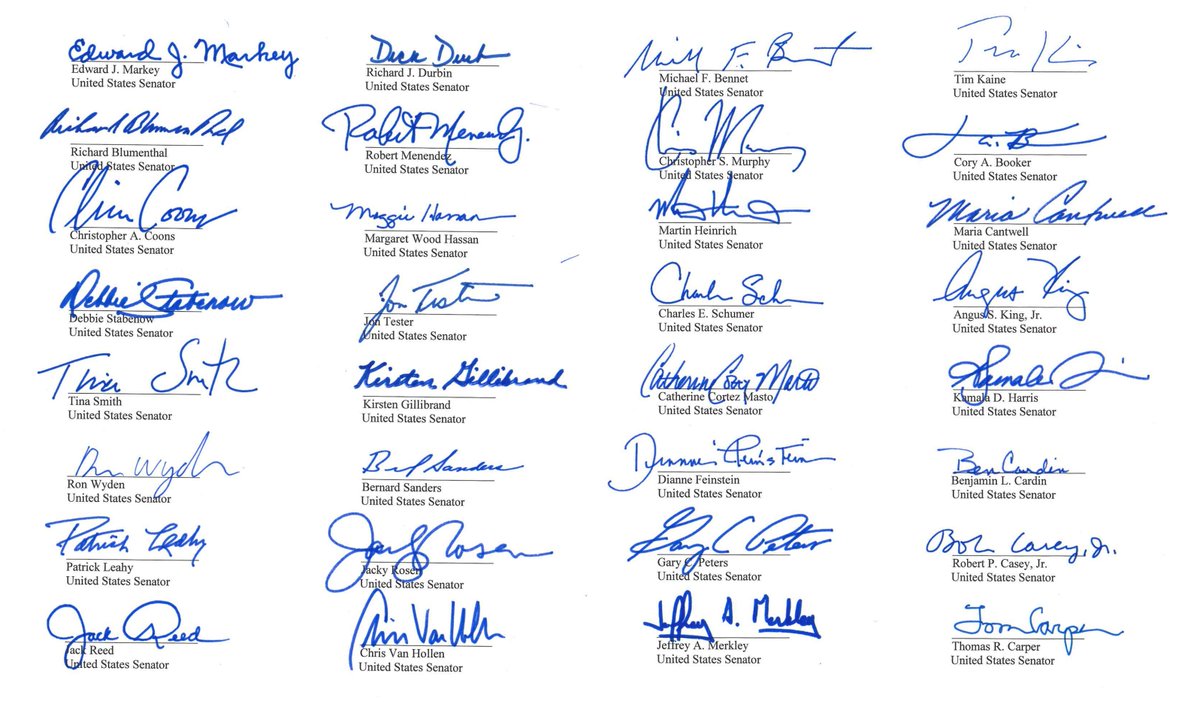 Edward J. Markey
Edward J. Markey
United States Senator
Dick Durb
Richard J. Durbin
United States Senator
Mill F. Bennet
Michael F. Bennet
United States Senator
Tim Kaine
Tim Kaine
United States Senator
Richard Blumenthal
Richard Blumenthal
United States Senator
Robert Menendez
Robert Menendez
United States Senator
Chris Murphy
Christopher S. Murphy
United States Senator
Cory A. Booker
United States Senator
Chris Coons
Christopher A. Coons
United States Senator
Maggie Hassan
Margaret Wood Hassan
United States Senator
Martin Heinrich
United States Senator
Maria Cantwell
Maria Cantwell
United States Senator
Debbie Stabenow
Debbie Stabenow
United States Senator
Jon Tester
Jon Tester
United States Senator
Charles Schumer
Charles E. Schumer
United States Senator
Angus King
Angus S. King, Jr.
United States Senator
Tina Smith
Tina Smith
United States Senator
Kirsten Gillibrand
Kirsten Gillibrand
United States Senator
Catherine Cortez Masto
Catherine Cortez Masto
United States Senator
Kamala D. Harris
United States Senator
Ron Wyden
Ron Wyden
United States Senator
Bernard Sanders
United States Senator
Dianne Feinstein
Dianne Feinstein
United States Senator
Ben Cardin
Benjamin L. Cardin
United States Senator
Patrick Leahy
Patrick Leahy
United States Senator
Jacky Rosen
Jacky Rosen
United States Senator
Gary C Peters
Gary C. Peters
United States Senator
Bob Casey, Jr.
Robert P. Casey, Jr.
United States Senator
Jack Reed
Jack Reed
United States Senator
Chris Van Hollen
Chris Van Hollen
United States Senator
Jeffrey A. Merkley
Jeffrey A. Merkley
United States Senator
Tom Carper
Thomas R. Carper
United States Senator